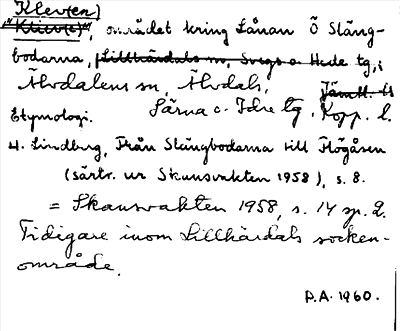 Klev(en)
"Kliv(e)", området kring Lånan Ö Släng-
bodarna, Lillhärdals sn, Svegs o Hede tg, i
Älvdalens sn, Älvdals,
Särna o. Idre tg. Kopp. l.
Jämtl. l.
Etymologi.
H. Lindberg, Från Slängbodarna till Högåsen
(särtr. ur Skansvakten 1958), s. 8.
= Skansvakten 1958, s. 14 sp. 2.
Tidigare inom Lillhärdals socken-
område.
P.A. 1960.